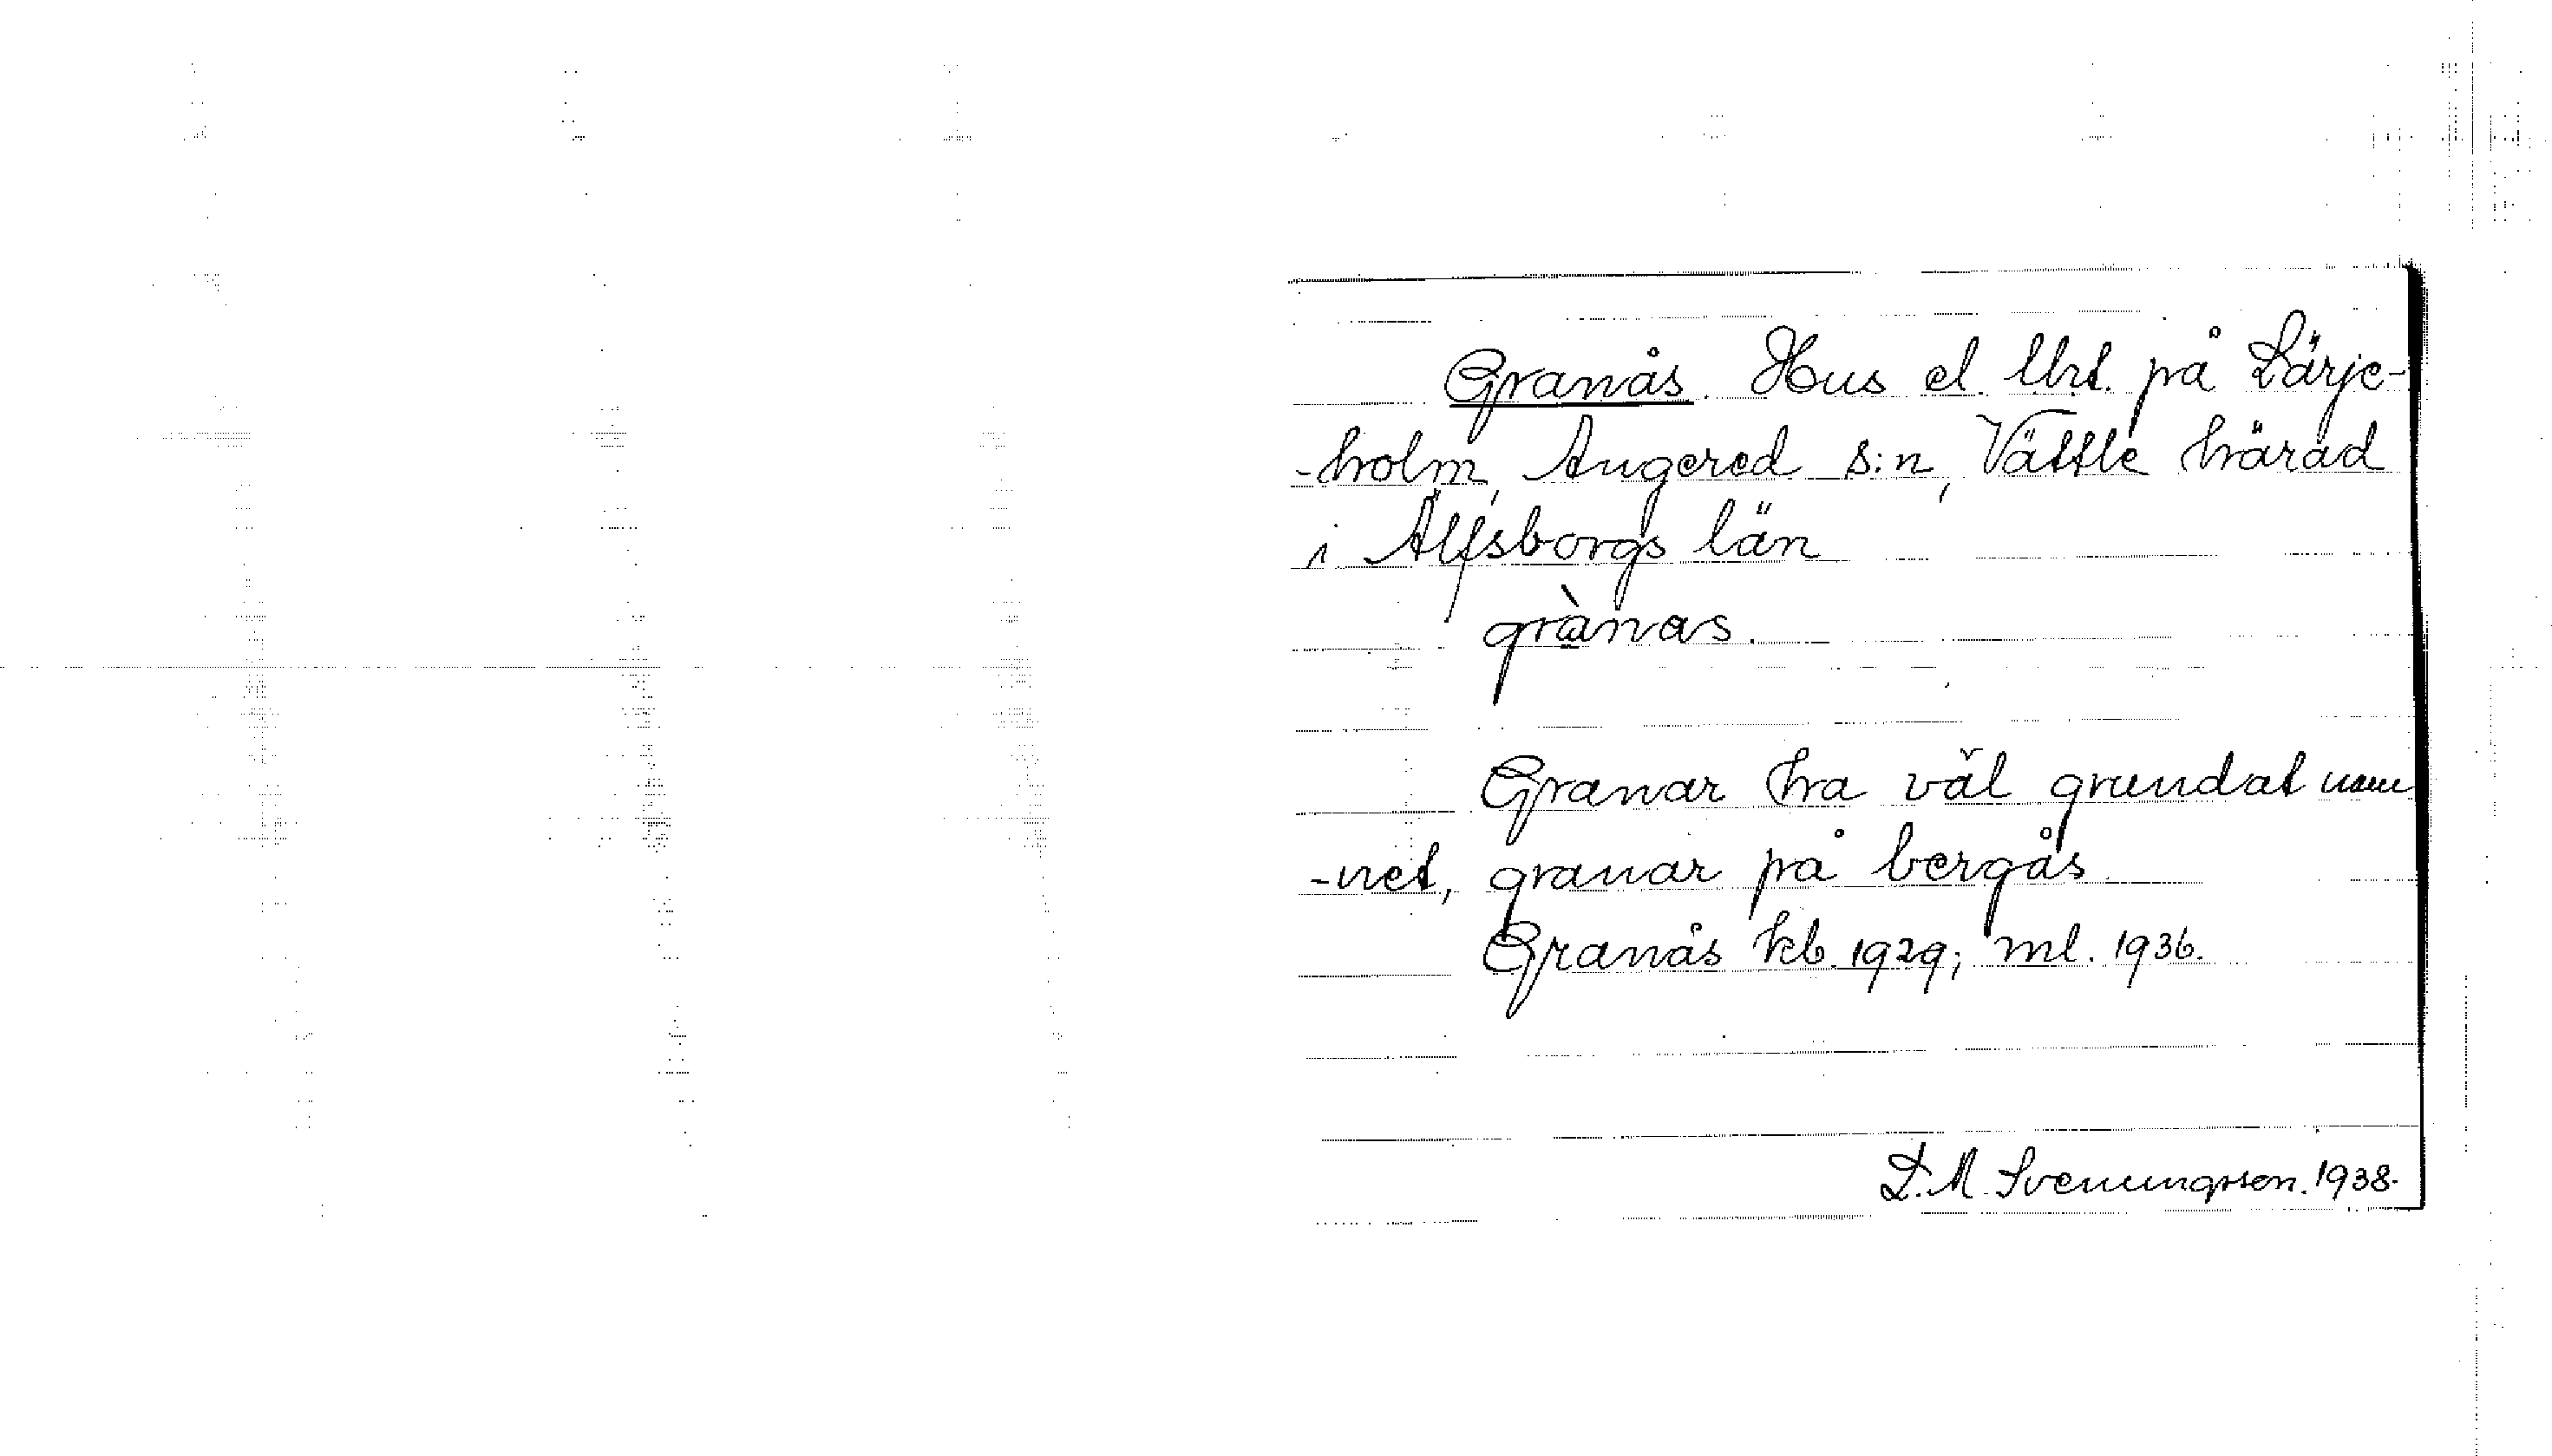 Granås. Hus el. lht. på Lärje-
-holm, Angered s:n, Vättle härad
i Älfsborgs län
grànas.
Granar ha väl grundat nam
-net, granar på bergås.
Granås kb. 1929; ml. 1936.
D. M. Svenungsson. 1938.